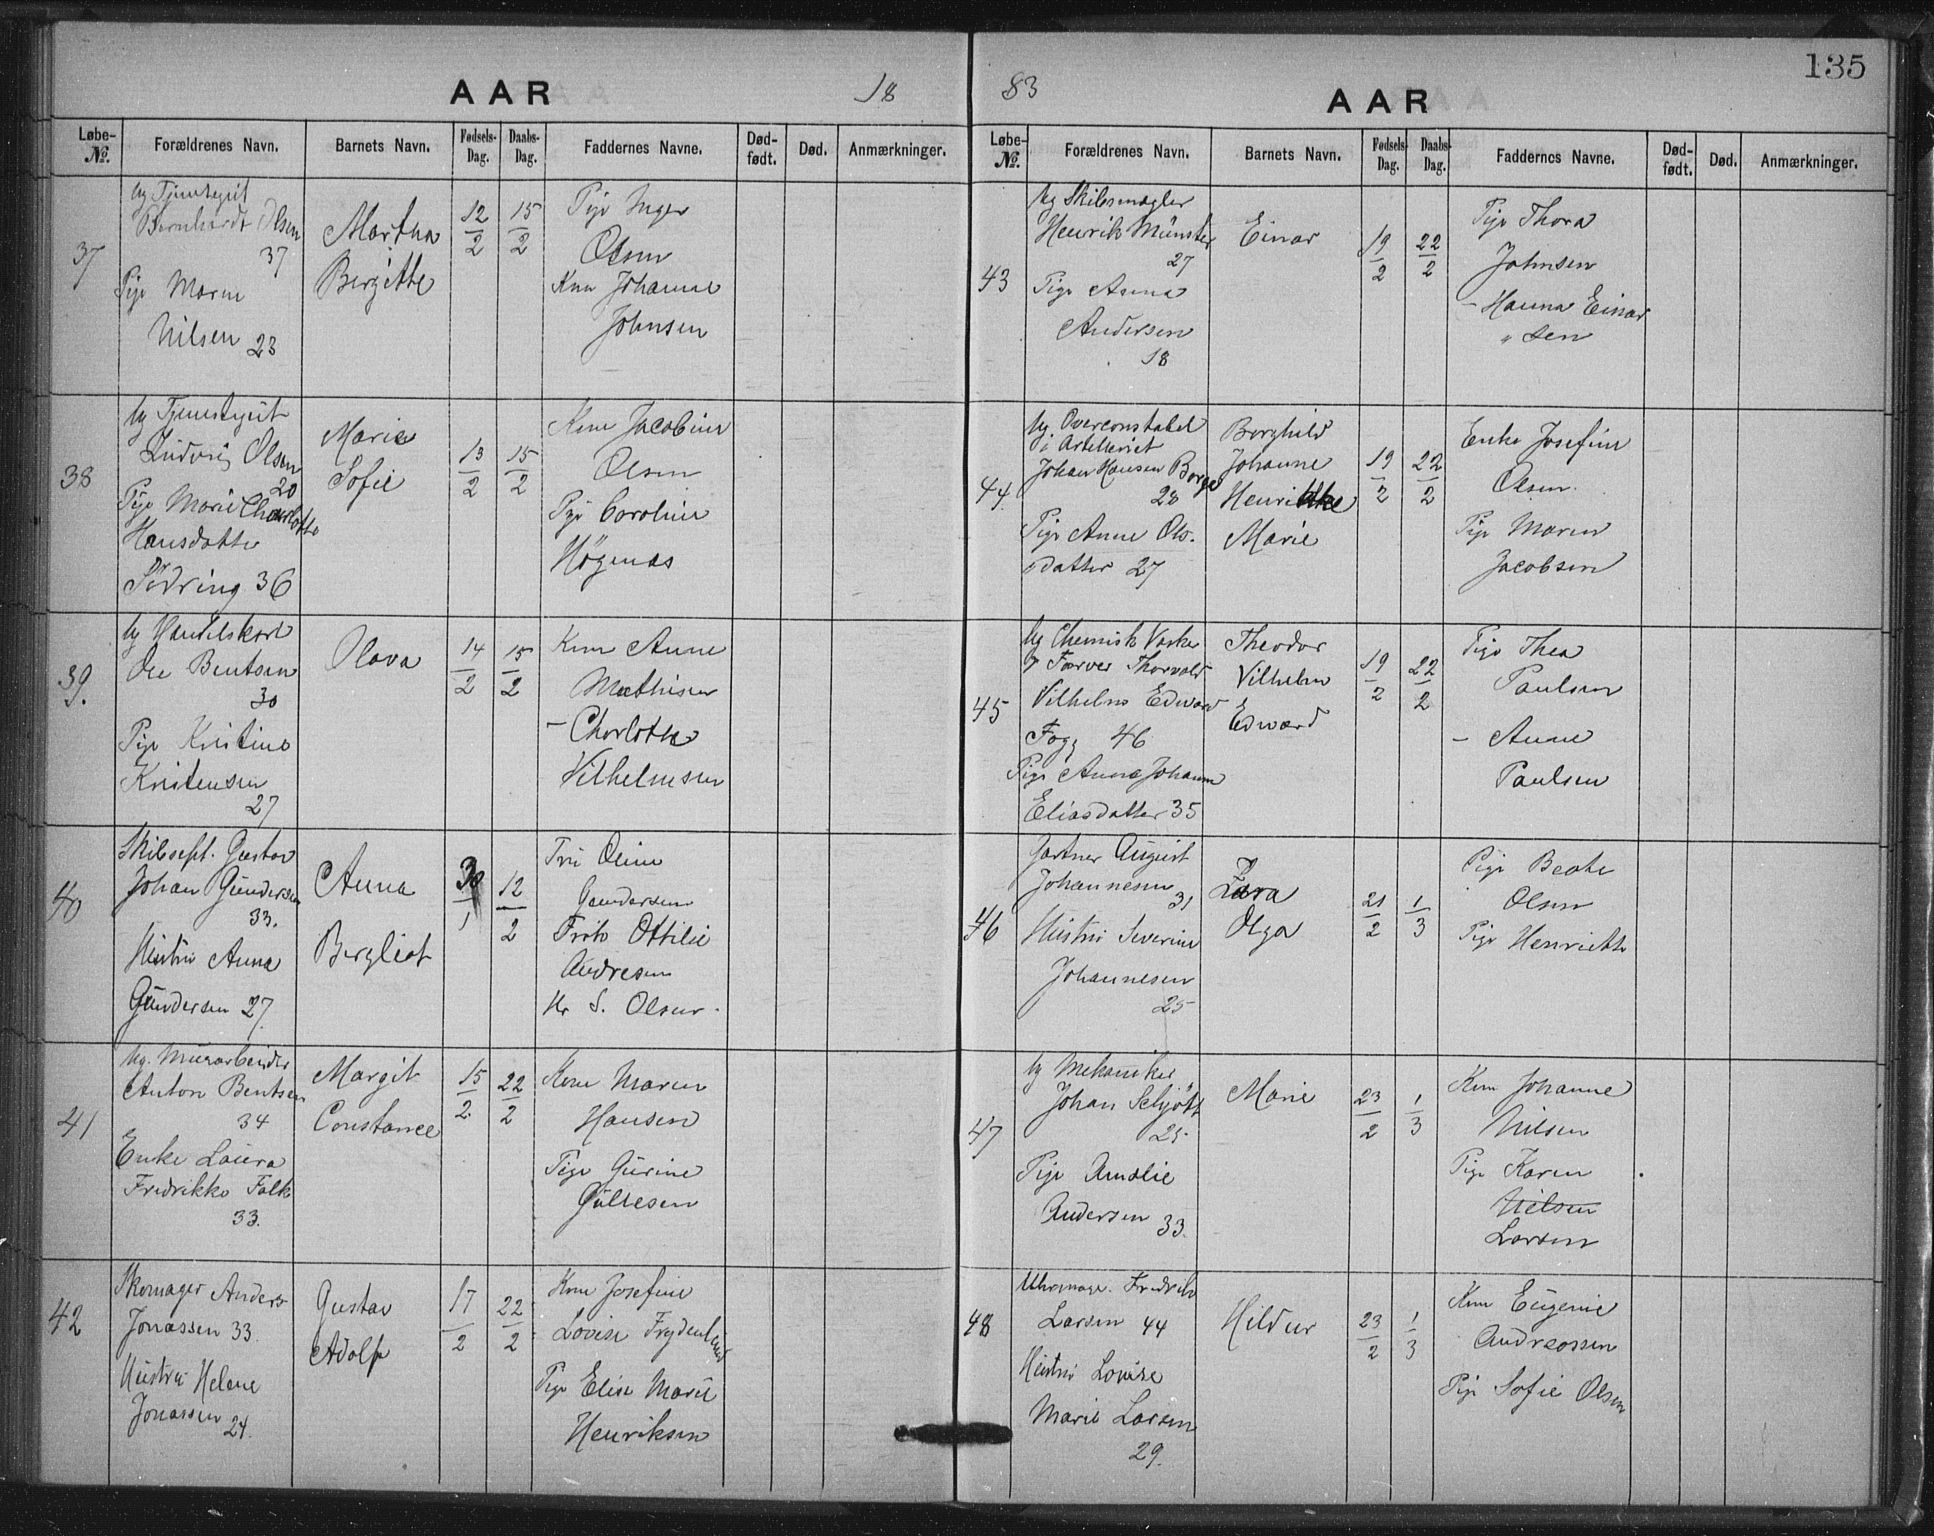 135
AAR 18
Løbe-№. Forældrenes Navn. Barnets Navn. Fødsels-Dag. Daabs-Dag. Faddernes Navne. Død-født. Død. Anmærkninger.
37
Ug Tjenstgut
Bernhardt Olsen
37
Pige Maren
Nilsen 23
Martha
Birgitte
12/2
15/2
Pige Inger
Olsen
Kone Johanne
Johnsen
38
Ug Tjenstgut
Ludvig Olsen
20
Pige Marie Charlotte
Hansdatter
Södring 36
Marie
Sofie
13/2
15/2
Kone Jacobine
Olsen
Pige Caroline
Högenæs
39.
Ug Handelskarl
Ole Bentsen
30
Pige Kristine
Kristensen
27
Olava
14/2
15/2
Kone Anne
Mathisen
- Charlotte
Vilhelmsen
40
Skibscpt. Gustav
Johan Gundersen
33.
Hustru Anna
Gundersen 27.
Anna
Bergliot
30/1
12/2
Fru Oline
Gundersen
Frøk Ottilie
Andresen
Hr S. Olsen.
41
Ug. Murarbeider
Anton Bentsen
34
Enke Laura
Fredrikke Falk
33.
Margit
Constance
15/2
22/2
Kone Maren
Hansen
Pige Gurine
Gullesen
42
Skomager Anders
Jonassen 33.
Hustru Helene
Jonassen 24.
Gustav
Adolf
17/2
22/2
Kone Josefine
Lovise Frydenlund
Pige Elise Marie
Henriksen
83 AAR
Løbe-№. Forældrenes Navn. Barnets Navn. Fødsels-Dag. Daabs-Dag. Faddernes Navne. Død-født. Død. Anmærkninger.
43
Ug Skibsmægler
Henrik Münster
27
Pige Anna
Andersen
18
Einar
19/2
22/2
Pige Thora
Johnsen
- Hanna Einar
" sen
44.
Ug. Overconstabel
i Artelleriet
Johan Hansen Borge
28
Pige Anne Ols-
datter 27
Borghild
Johanne
Henrikke
Marie
19/2
22/2
Enke Josefine
Olsen.
Pige Maren
Jacobsen
45
Ug Chemisk Vasker
& Farver Thorvald
Vilhelm Edward
Fogg 46
Pige Anna Johanne
Eliasdatter 35
Theodor
Vilhelm
Edward
19/2
22/2
Pige Thea
Paulsen
- Anne
Paulsen
46
Gartner August
Johannesen
31
Hustru Severine
Johannesen
25
Zara
Olga
21/2
1/3
Pige Beate
Olsen
Pige Henriette
47
Ug Mekaniker
Johan Schjött
25
Pige Amalie
Andersen 33.
Marie
23/2
1/3
Kone Johanne
Nilsen
Pige Karen
Nielsen
Larsen
48
Uhrmager Fredrik
Larsen 44
Hustru Lovise
Marie Larsen
29.
Hildur
23/2
1/3
Kone Eugenie
Andreassen
Pige Sofie Olsen